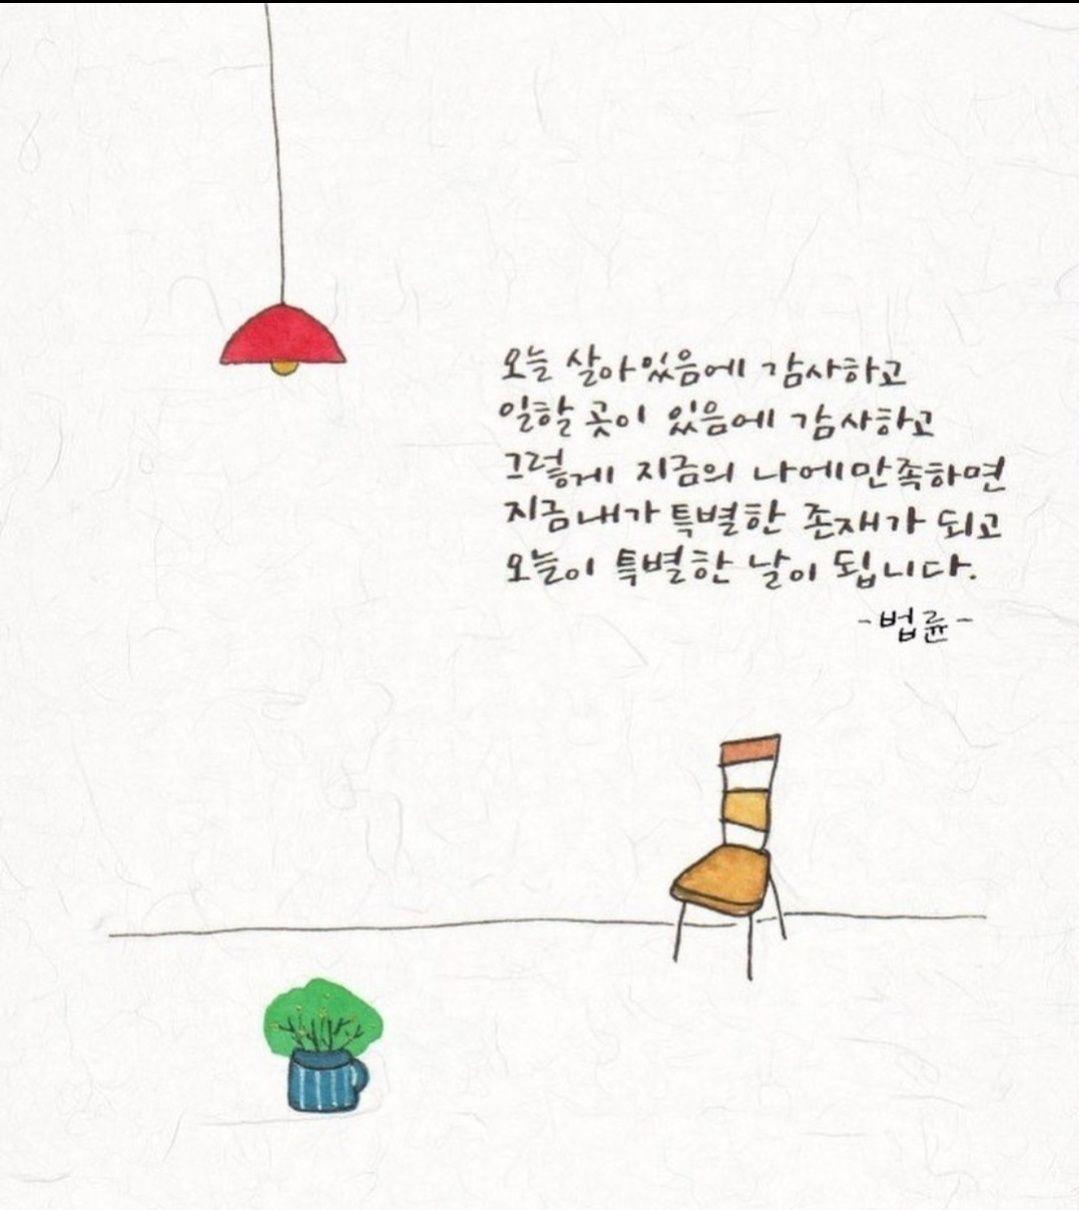 오늘 살아있음에 감사하고
일할 곳이 있음에 감사하고
그렇게 지금의 나에만족하면
지금내가 특별한 존재가 되고
오늘이 특별한 날이 됩니다.
-법륜-